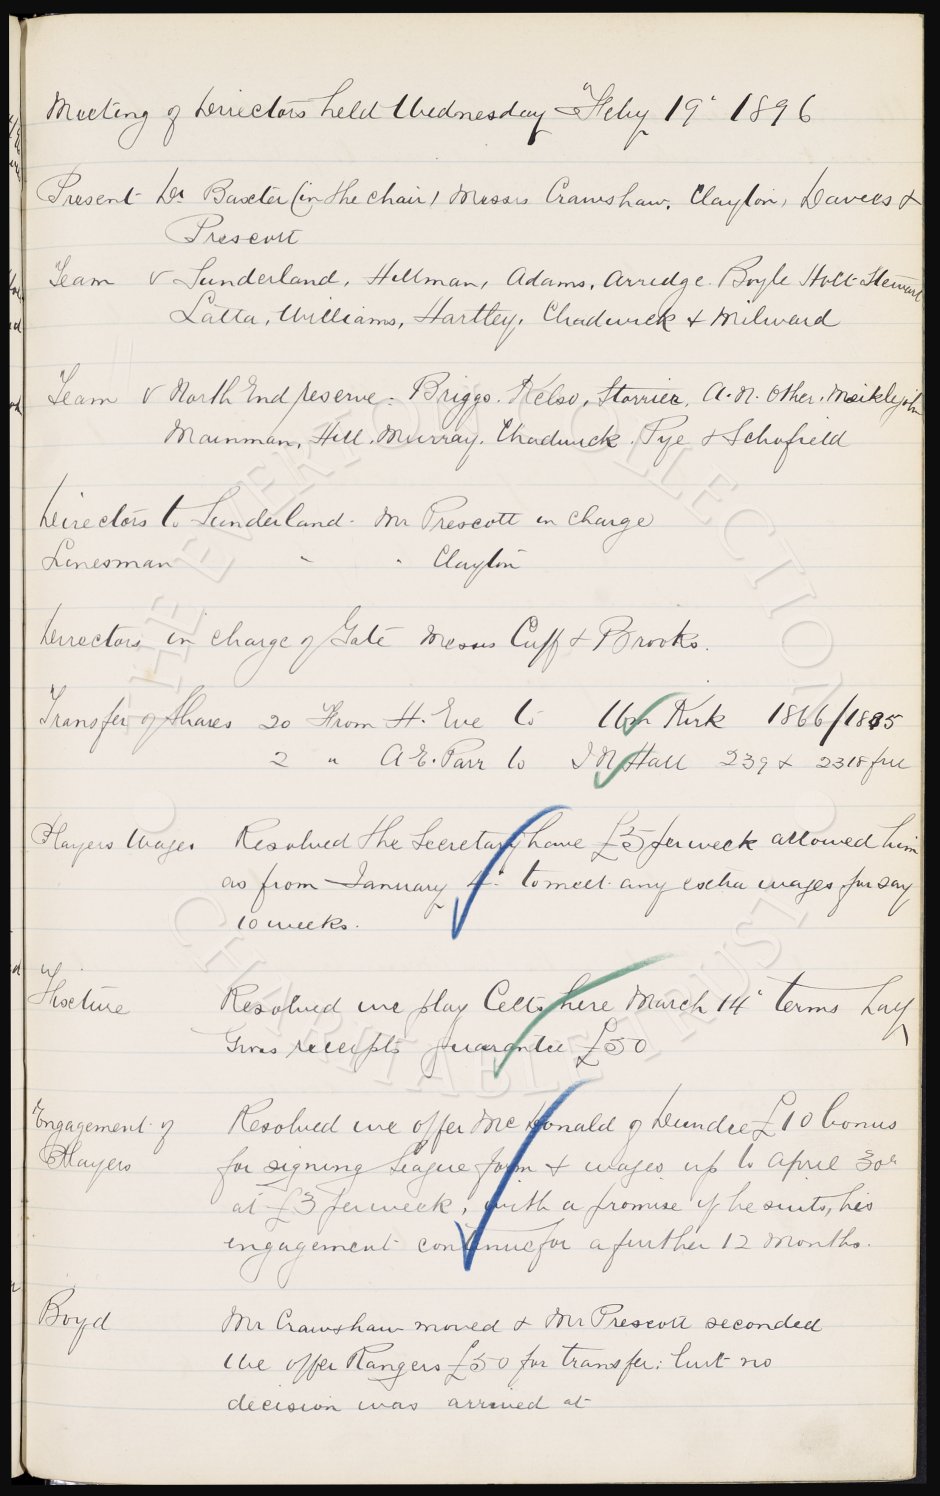 Meeting of Directors held Wednesday Feby 19th 1896
Present Dr Baxter (in the chair) Messrs Crawshaw, Clayton, Davies &
Prescott
Team v Sunderland, Hillman, Adams, Arridge. Boyle Holt Stewart
Latta, Williams, Hartley, Chadwick & Milward
Team v North End Reserve. Briggs. Kelso, Storrier, A.N. Other. Meiklejohn
Mainman, Hill. Murray. Chadwick. Pye & Schofield
Directors to Sunderland. Mr Prescott in charge
Linesman " " Clayton
Directors in charge of Gate Messrs Cuff & Brooks.
Transfer of Shares 20 From H. Eve to Wm Kirk 1866/1885
2 " A.E. Parr to J N Hall 239 & 2318 full
Players Wages Resolved the Secretary have £5 per week allowed him
as from January 4th to meet any extra wages for say
10 weeks.
Fixture Resolved we play Celts here March 14th terms half
Gross receipts guarantee £50
Engagement of Resolved we offer McDonald of Dundee £10 bonus
Players for signing League form & wages up to April 30th
at £3 per week, with a promise if he suits, his
engagement continue for a further 12 months.
Boyd Mr Crawshaw moved & Mr Prescott seconded
we offer Rangers £50 for transfer: but no
decision was arrived at
THE EVERTON COLLECTION
CHARITABLE TRUST